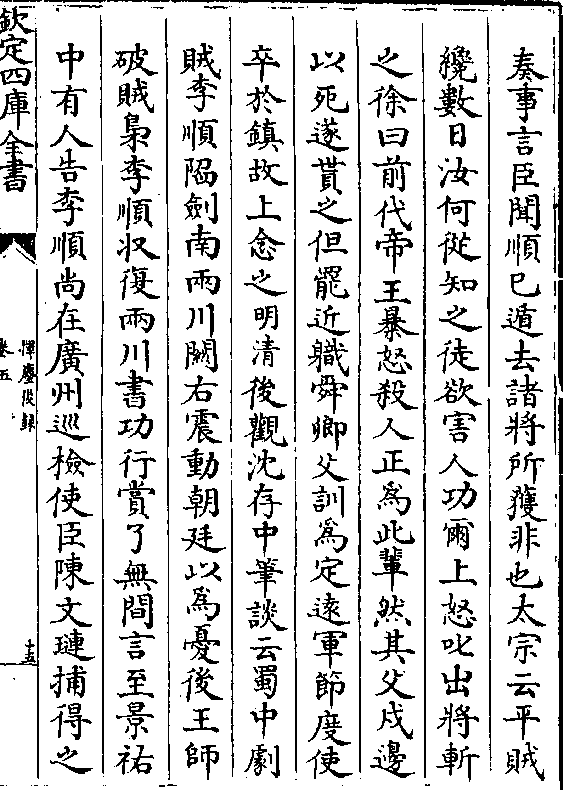 奏事言臣聞順已遁去諸將所獲非也太宗云平賊
纔數日汝何從知之徒欲害人功爾上怒叱出將斬
之徐曰前代帝王暴怒殺人正為此輩然其父戍邊
以死遂貰之但罷近職舜卿父訓為定逺軍節度使
卒於鎮故上念之明清後觀沈存中筆談云蜀中劇
賊李順䧟劍南兩川闗右震動朝廷以為憂後王師
破賊梟李順収復兩川書功行賞了無間言至景祐
中有人告李順尚在廣州巡檢使臣陳文璉捕得之
欽定四庫全書
揮麈後録
卷五
十五